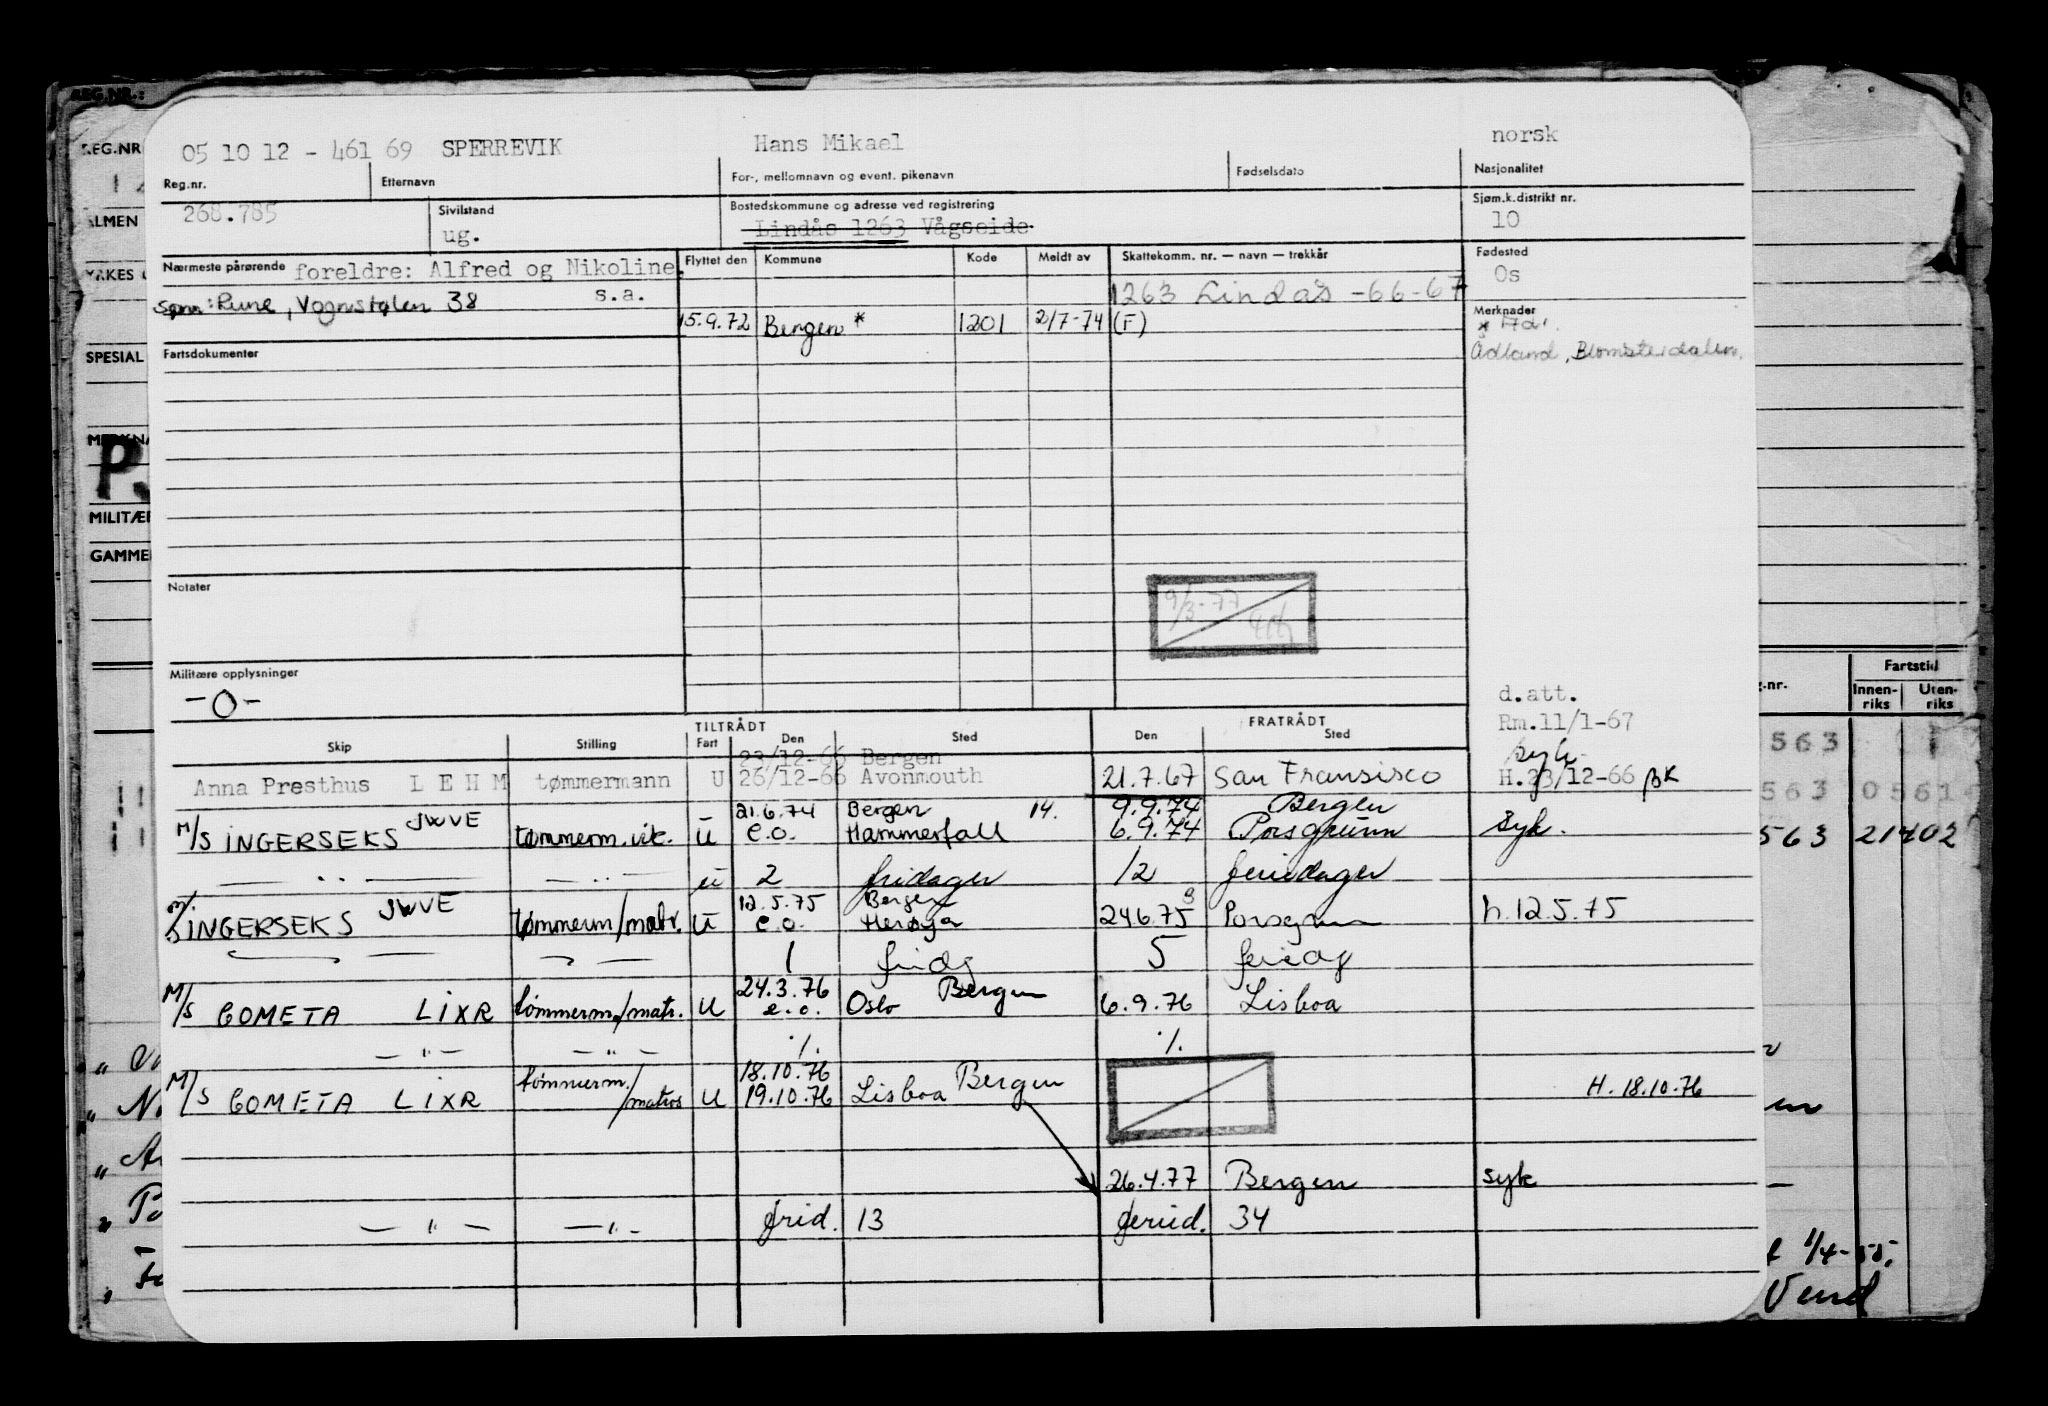 05 10 12 - 461 69 SPERREVIK Hans Mikael norsk
Reg.nr. Etternavn For-, mellomnavn og event. pikenavn Fødselsdato Nasjonalitet
268.785 Sivilstand ug. Bostedskommune og adresse ved registrering Lindås 1263 Vågseide Sjøm.k.distrikt nr. 10
Nærmeste pårørende foreldre: Alfred og Nikoline, Flyttet den Kommune Kode Meldt av Skattekomm. nr. — navn — trekkår Fødested Os
s.a. 1263 Lindås -66-67
Sønn: Rune, Vognstølen 38
15.9.72 Bergen * 1201 2/7-74 (F) Merknader
* Adr.
Ådland, Blomsterdalen.
Fartsdokumenter
Notater
9/3-77
Militære opplysninger
-0-
d.att.
Rm.11/1-67
TILTRÅDT FRATRÅDT
Skip Stilling Fart Den Sted Den Sted
23/12-66 Bergen syk.
Anna Presthus L E H M tømmermann U 26/12-66 Avonmouth 21.7.67 San Fransisco H.23/12-66 BK
21.6.74 Bergen 14. 9.9.74 Bergen
M/S INGERSEKS JWVE tømmerm.vik. U e.o. Hammerfall 6.9.74 Porsgrunn Syk.
— " — — " — U 2 fridager 12 feriedager
12.5.75 Bergen
M/S INGERSEKS JWVE tømmerm/matr. U e.o. Herøya 24.6.75 Porsgrunn h.12.5.75
1 fridg 5 feriedg
24.3.76 Bergen
M/S COMETA LIXR tømmerm/matr. U e.o. Oslo 6.9.76 Lisboa
— " — — " — ./. ./.
18.10.76 Bergen
M/S COMETA LIXR tømmerm./matros U 19.10.76 Lisboa H. 18.10.76
26.4.77 Bergen syk
— " — — " — frid. 13 feried. 34
REG.NR.:
REG.NR
ALMEN
YRKES
SPESIAL
MERKNA
MILITÆR
GAMME
Fartstid
g.-nr. Innen-riks Uten-riks
563
563 0561
563 21402
1/4-55.
Vend